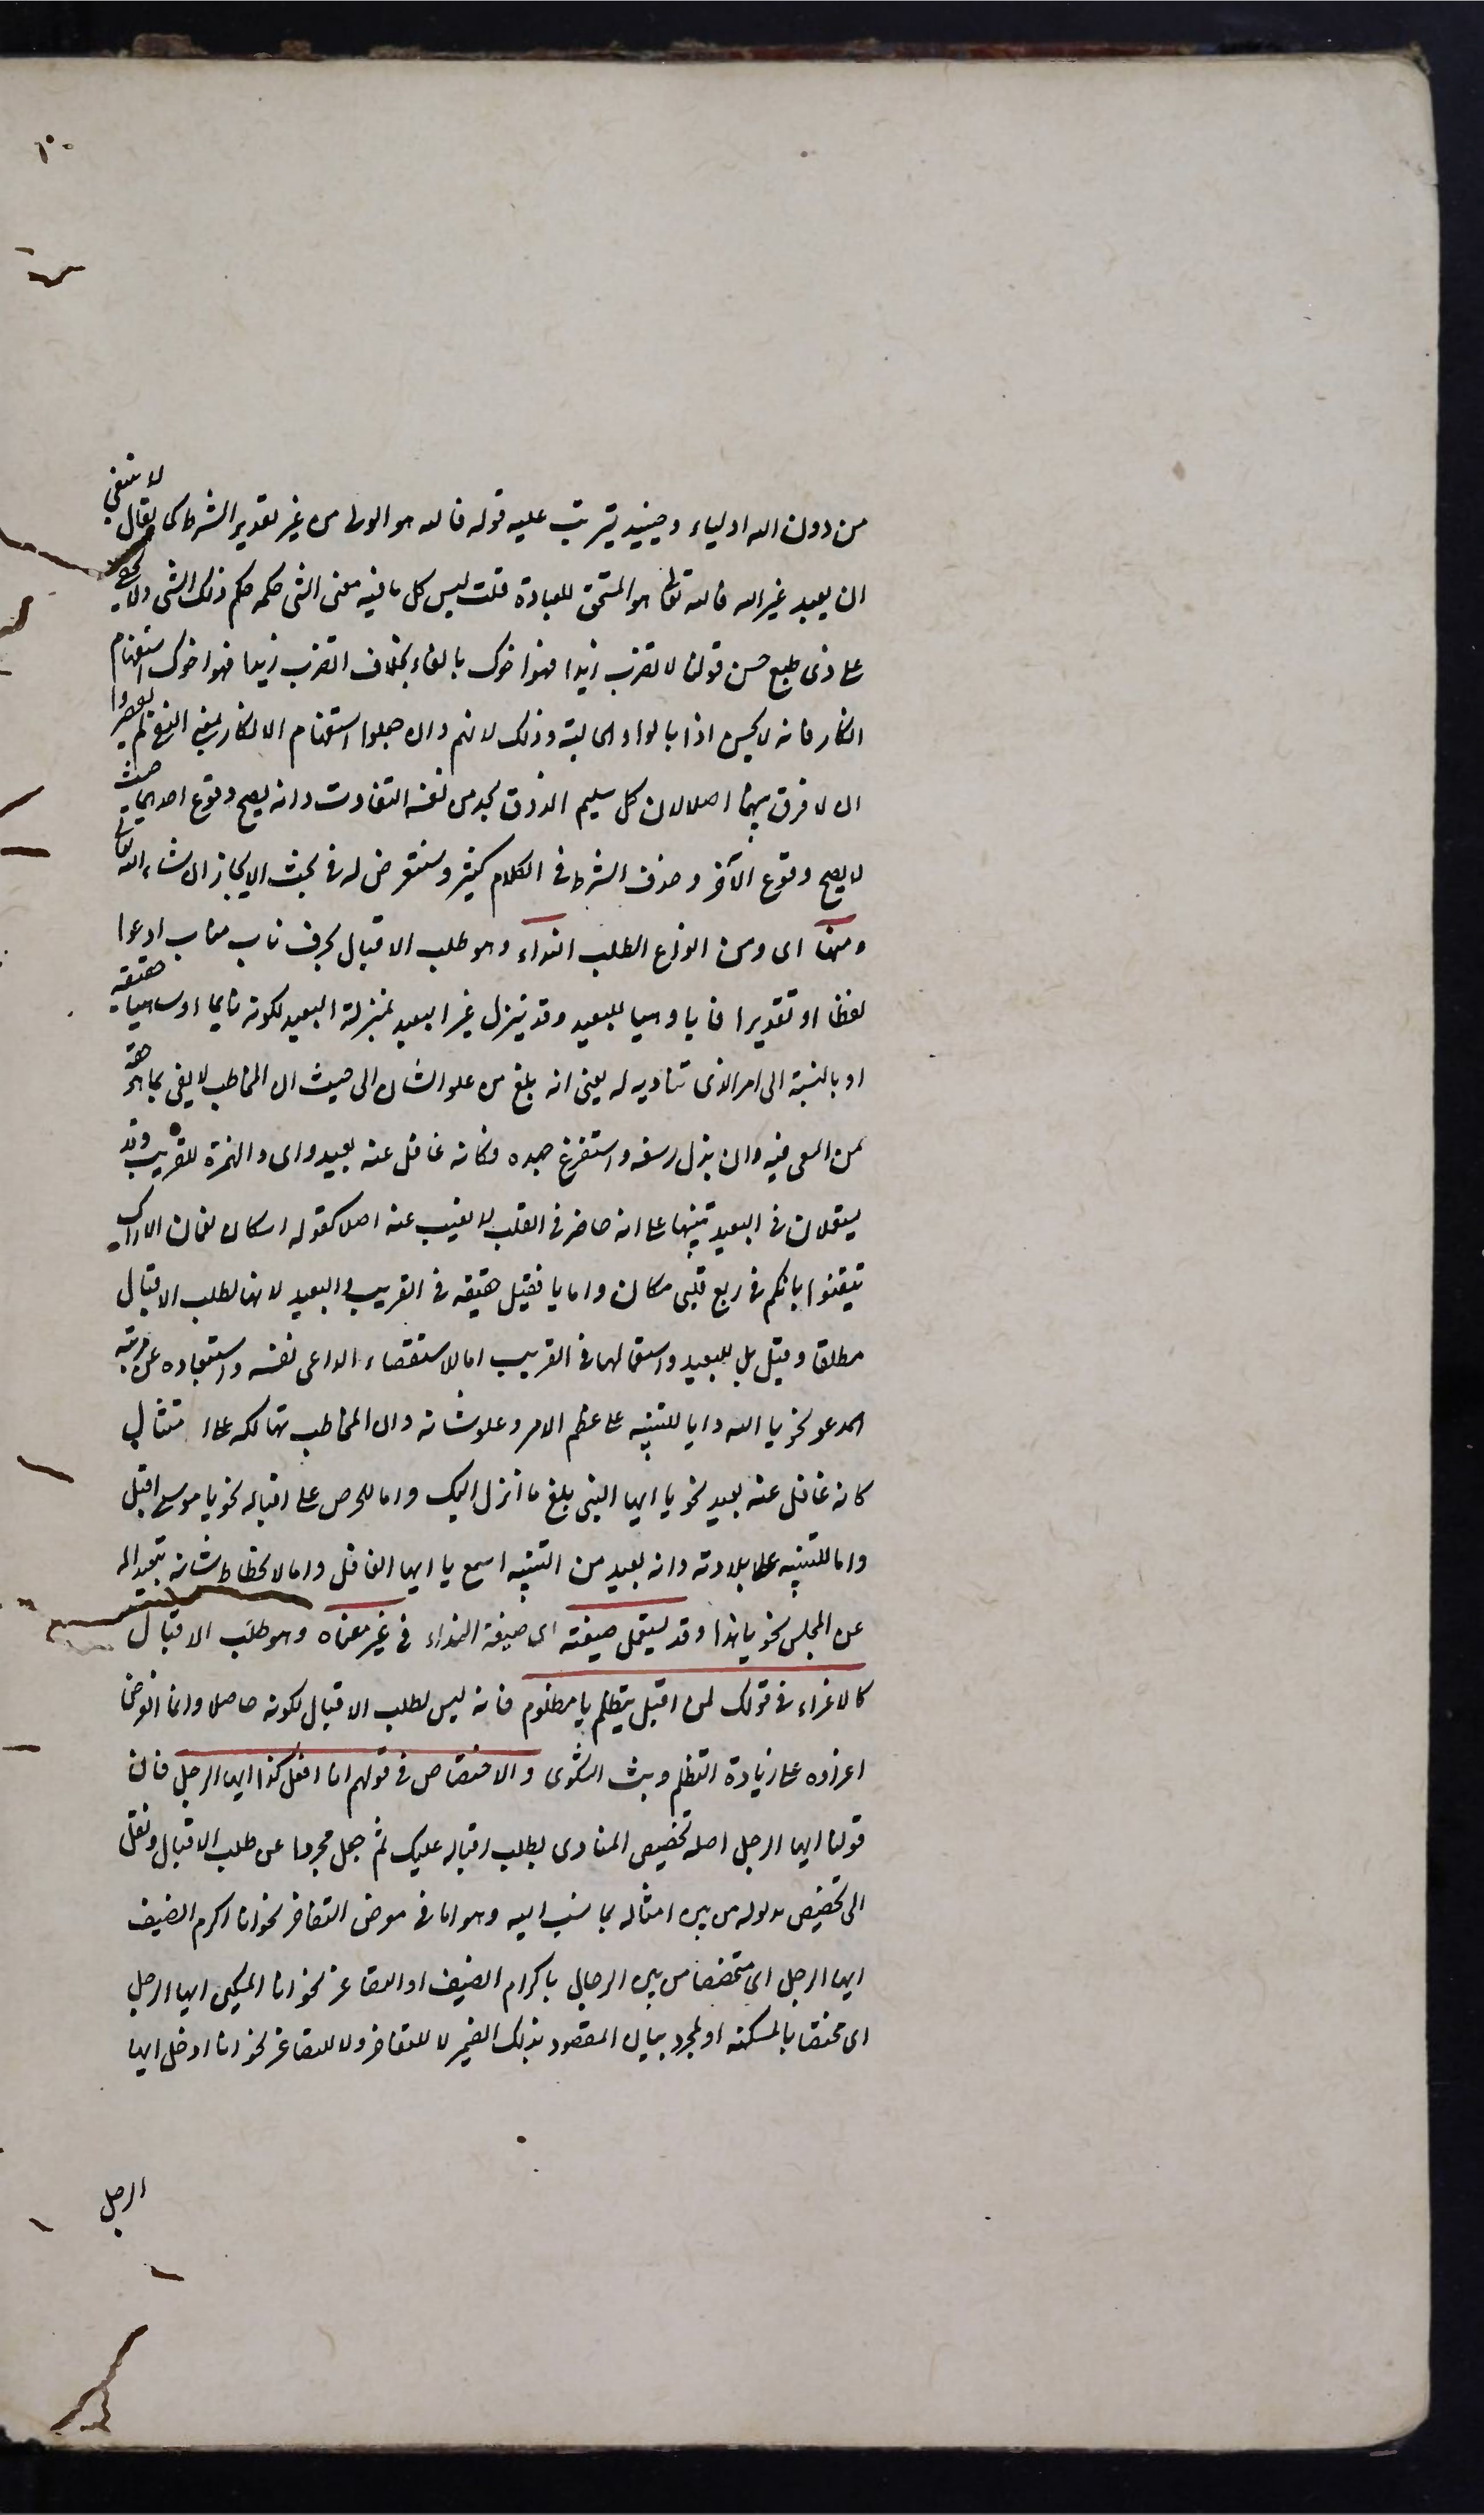 من دون الله اولياء وحينئذ يترتب عليه قوله فالله هو الولى من غير تقدير الشرط كما يقال لا ينبغى
ان يعبد غير الله فالله تعالى هو المستحق للعبادة قلت ليس كل ما فيه معنى الشئ حكمه حكم ذلك الشئ ولا يخفى
على ذى طبع حسن قولنا لا تضرب زيدا فهو اخوك بالفاء بخلاف اتضرب زيدا فهو اخوك استفهام
انكار فانه لا يحسن اذا بالواو الحالية وذلك لانهم وان جعلوا استفهام الانكار بمعنى النفى لم يقصدوا
ان لا فرق بينهما اصلا لان كل سليم الذوق يجد من نفسه التفاوت وانه يصح وقوع احديهما حيث
لا يصح وقوع الآخر وحذف الشرط فى الكلام كثير وسنتعرض له فى بحث الايجاز ان شاء الله تعالى
ومنها اى ومن انواع الطلب النداء وهو طلب الاقبال بحرف ناب مناب ادعوا
لفظا او تقديرا فايا وهيا للبعيد وقد ينزل غير البعيد بمنزلة البعيد لكونه نائما او ساهيا حقيقة
او بالنسبة الى امر الذى تناديه له يعنى انه بلغ من علو الشان الى حيث ان المخاطب لا يفى بما هو حقه
من السعى فيه وان بذل وسعه واستفرغ جهده فكانه غافل عنه بعيد واى والهمزة للقريب وقد
يستعملان فى البعيد تنبيها على انه حاضر فى القلب لا يغيب عنه اصلا كقوله اسكان نعمان الاراك
تيقنوا بانكم فى ربع قلبى مكان واما يا فقيل حقيقة فى القريب والبعيد لانها لطلب الاقبال
مطلقا وقيل بل للبعيد واستعمالها فى القريب اما لاستقصاء الداعى نفسه واستبعاده عن مرتبة
المدعو نحو يا الله واما للتنبيه على عظم الامر وعلو شانه وان المخاطب تهالكه على امتثال
كانه غافل عنه بعيد نحو يا ايها النبى بلغ ما انزل اليك واما للحرص على اقباله نحو يا موسى اقبل
واما للتنبيه على بلادته وانه بعيد من التنبيه اسمع يا ايها الغافل واما لانحطاط شانه تبعيدا له
عن المجلس نحو يا هذا وقد يستعمل صيغته اى صيغة النداء فى غير معناه وهو طلب الاقبال
كالاغراء فى قولك لمن اقبل يتظلم يا مظلوم فانه ليس لطلب الاقبال لكونه حاصلا وانما الغرض
اغراؤه على زيادة التظلم وبث الشكوى والاختصاص فى قولهم انا افعل كذا ايها الرجل فان
قولنا ايها الرجل اصله تخصيص المنادى بطلب اقباله عليك ثم جعل مجردا عن طلب الاقبال ونقل
الى تخصيص مدلوله من بين امثاله بما نسب اليه وهو اما فى معرض التفاخر نحو انا اكرم الضيف
ايها الرجل اى متخصصا من بين الرجال باكرام الضيف او التصاغر نحو انا المسكين ايها الرجل
اى مختصا بالمسكنة او لمجرد بيان المقصود بذلك الضمير لا للتفاخر ولا للتصاغر نحو انا ادخل ايها
الرجل